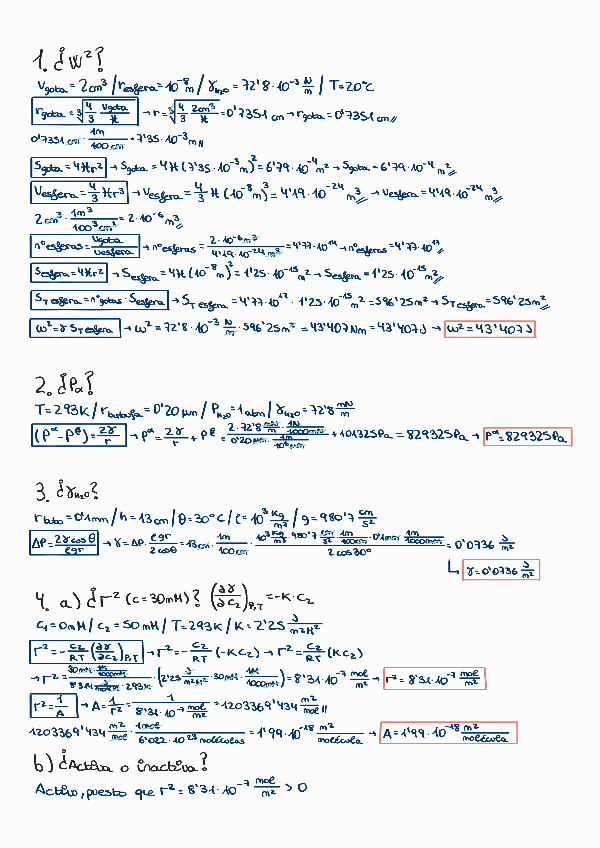 1. ¿W²?
Vgota = 2cm³ / resfera = 10⁻⁸m / γH₂O = 72'8 · 10⁻³ N/m / T = 20°C
rgota = ∛(4/3 Vgota/π) → r = ∛(4/3 2cm³/π) = 0'7351 cm → rgota = 0'7351 cm//
0'7351 cm · 1m/100 cm = 7'35 · 10⁻³ m//
Sgota = 4πr² → Sgota = 4π (7'35 · 10⁻³ m)² = 6'79 · 10⁻⁴ m² → Sgota = 6'79 · 10⁻⁴ m²//
Vesfera = 4/3 πr³ → Vesfera = 4/3 π (10⁻⁸ m)³ = 4'19 · 10⁻²⁴ m³// → Vesfera = 4'19 · 10⁻²⁴ m³//
2 cm³ · 1m³/100³ cm³ = 2 · 10⁻⁶ m³//
nºesferas = Vgota/Vesfera → nºesferas = 2 · 10⁻⁶ m³/4'19 · 10⁻²⁴ m³ = 4'77 · 10¹⁷ → nºesferas = 4'77 · 10¹⁷//
Sesfera = 4πr² → Sesfera = 4π (10⁻⁸ m)² = 1'25 · 10⁻¹⁵ m² → Sesfera = 1'25 · 10⁻¹⁵ m²//
ST esfera = nºgotas · Sesfera → ST esfera = 4'77 · 10¹⁷ · 1'25 · 10⁻¹⁵ m² = 596'25 m² → ST esfera = 596'25 m²//
ω² = γ ST esfera → ω² = 72'8 · 10⁻³ N/m · 596'25 m² = 43'407 Nm = 43'407 J → ω² = 43'407 J
2. ¿Pα?
T = 293K / rburbuja = 0'20 μm / PH₂O = 1 atm / γH₂O = 72'8 mN/m
(Pᵅ - Pᵝ) = 2γ/r → Pᵅ = 2γ/r + Pᵝ = (2 · 72'8 mN/m · 1N/1000mN)/(0'20 μm · 1m/10⁶ μm) + 101325Pa = 829325Pa → Pᵅ = 829325Pa
3. ¿γH₂O?
rtubo = 0'1mm / h = 13 cm / θ = 30°C / ρ = 10³ Kg/m³ / g = 980'7 cm/s²
ΔP = 2γcosθ/ρgr → γ = ΔP · ρgr/2cosθ = 13 cm · 1m/100 cm · (10³ Kg/m³ · 980'7 cm/s² · 1m/100cm · 0'1mm · 1m/1000mm)/(2 cos 30°) = 0'0736 J/m²
↳ γ = 0'0736 J/m²
4. a) ¿Γ² (c = 30mM)? (∂γ/∂c₂)P,T = -K · C₂
C₁ = 0mM / C₂ = 50 mM / T = 293K / K = 2'25 J/m²M²
Γ² = - C₂/RT (∂γ/∂C₂)P,T → Γ² = - C₂/RT (-KC₂) → Γ² = C₂/RT (KC₂)
→ Γ² = (30mM · 1M/1000mM)/(8'314 J/molK · 293K) · (2'25 J/m²M² · 30mM · 1M/1000mM) = 8'31 · 10⁻⁷ mol/m² → Γ² = 8'31 · 10⁻⁷ mol/m²
Γ² = 1/A → A = 1/Γ² = 1/(8'31 · 10⁻⁷ mol/m²) = 1203369'434 m²/mol//
1203369'434 m²/mol · 1mol/6'022 · 10²³ moléculas = 1'99 · 10⁻¹⁸ m²/molécula → A = 1'99 · 10⁻¹⁸ m²/molécula
b) ¿Activa o inactiva?
Activo, puesto que Γ² = 8'31 · 10⁻⁷ mol/m² > 0